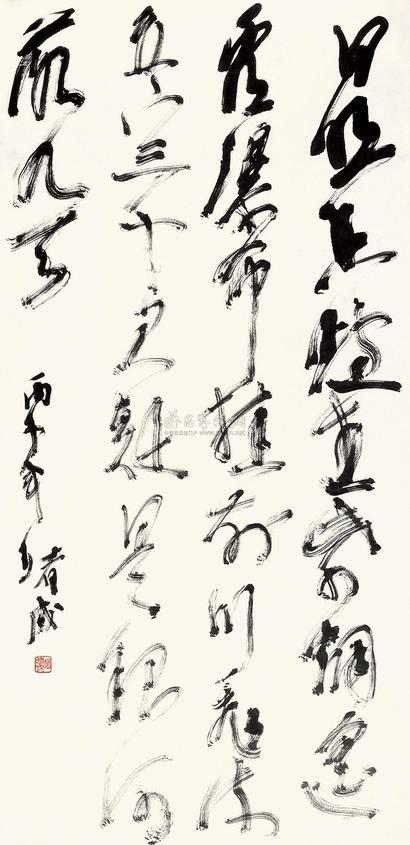 日照香爐生紫烟遥
看瀑布挂前川飛流
直下三千尺疑是銀河
落九天
丙子年